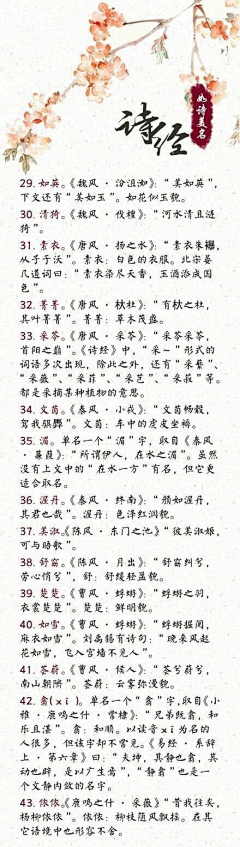 诗经
如诗美名
29. 如英。《魏风·汾沮洳》：“美如英”，
下文还有“美如玉”。如花似玉貌。
30. 清猗。《魏风·伐檀》：“河水清且涟
猗”。
31. 素衣。《唐风·扬之水》：“素衣朱襮，
从子于沃”。素衣：白色的衣服。北宋晏
几道词曰：“素衣染尽天香，玉酒添成国
色”。
32. 菁菁。《唐风·杕杜》：“有杕之杜，
其叶菁菁”。菁菁：草木茂盛。
33. 采苓。《唐风·采苓》：“采苓采苓，
首阳之巅”。《诗经》中，“采~”形式的
词语多次出现，除此之外，还有“采蘩”、
“采薇”、“采菲”、“采艺”、“采菽”等。
都是采摘某种植物的意思。
34. 文茵。《秦风·小戎》：“文茵畅毂，
驾我骐馵”。文茵：车中的虎皮坐褥。
35. 湄。单名一个“湄”字，取自《秦风
·蒹葭》：“所谓伊人，在水之湄”。虽然
没有上文中的“在水一方”有名，但它更
适合取名。
36. 渥丹。《秦风·终南》：“颜如渥丹，
其君也哉”。渥丹：色泽红润貌。
37. 美淑。《陈风·东门之池》“彼美淑姬，
可与晤歌”。
38. 舒窈。《陈风·月出》：“舒窈纠兮，
劳心悄兮”，舒：舒缓轻盈貌。
39. 楚楚。《曹风·蜉蝣》：“蜉蝣之羽，
衣裳楚楚”。楚楚：鲜明貌。
40. 如雪。《曹风·蜉蝣》：“蜉蝣掘阅，
麻衣如雪”。刘禹锡有诗句：“晚来风起
花如雪，飞入宫墙不见人”。
41. 荟蔚。《曹风·候人》：“荟兮蔚兮，
南山朝隮”。荟蔚：云雾弥漫貌。
42. 翕(xī)。单名一个“翕”字，取自《小
雅·鹿鸣之什·常棣》：“兄弟既翕，和
乐且湛”。翕：和顺。以读音xī为名的
人很多，但该字却不常见。《易经·系辞
上·第六章》曰：“夫坤，其静也翕，其
动也辟，是以广生焉”，“静翕”也是一
个文静内敛的名字。
43. 依依。《鹿鸣之什·采薇》“昔我往矣，
杨柳依依”。依依：柳枝随风飘摇。在其
它语境中也形容不舍。